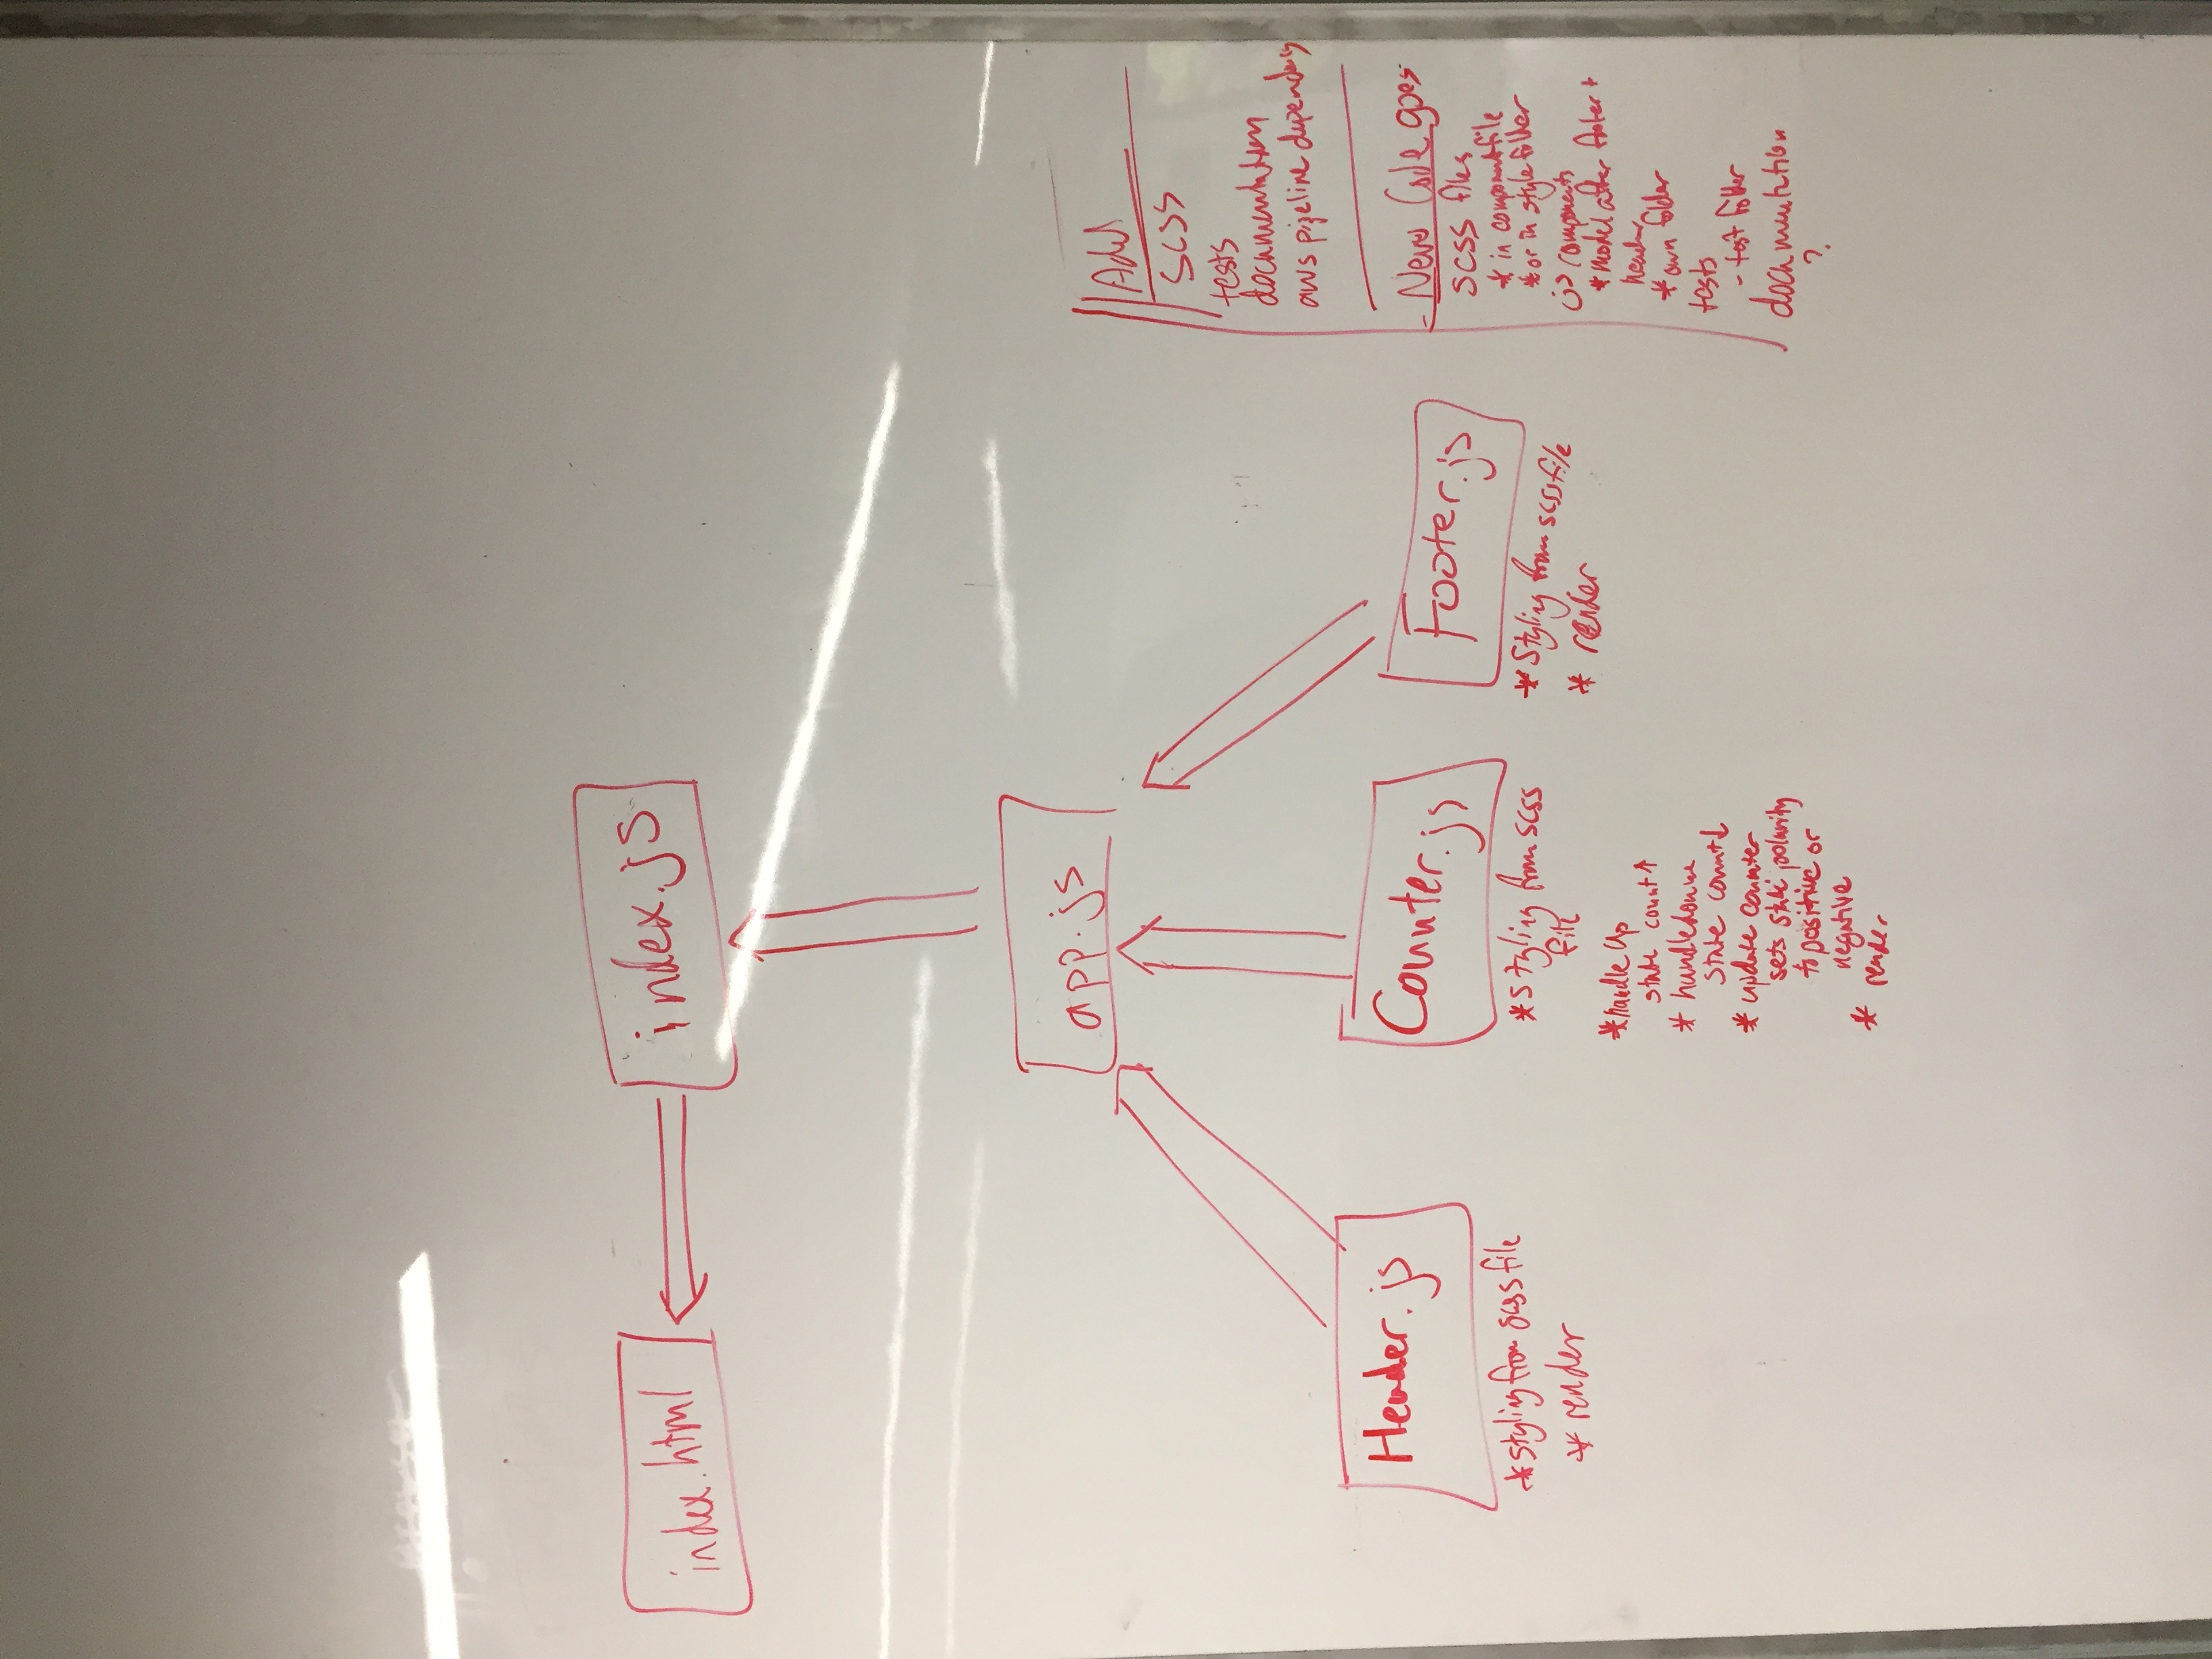 index.html
index.js
app.js
Header.js
* styling from scss file
* render
Counter.js
* styling from scss
file
* handle Up
state count ↑
* handledown
state count ↓
* update counter
sets state polarity
to positive or
negative
* render
Footer.js
* Styling from scss file
* render
Add
SCSS
tests
documentation
aws pipeline dependency
- New Code goes
SCSS files
* in component file
* or in style folder
js components
* model after footer +
header
* own folder
tests
- test folder
documentation
?